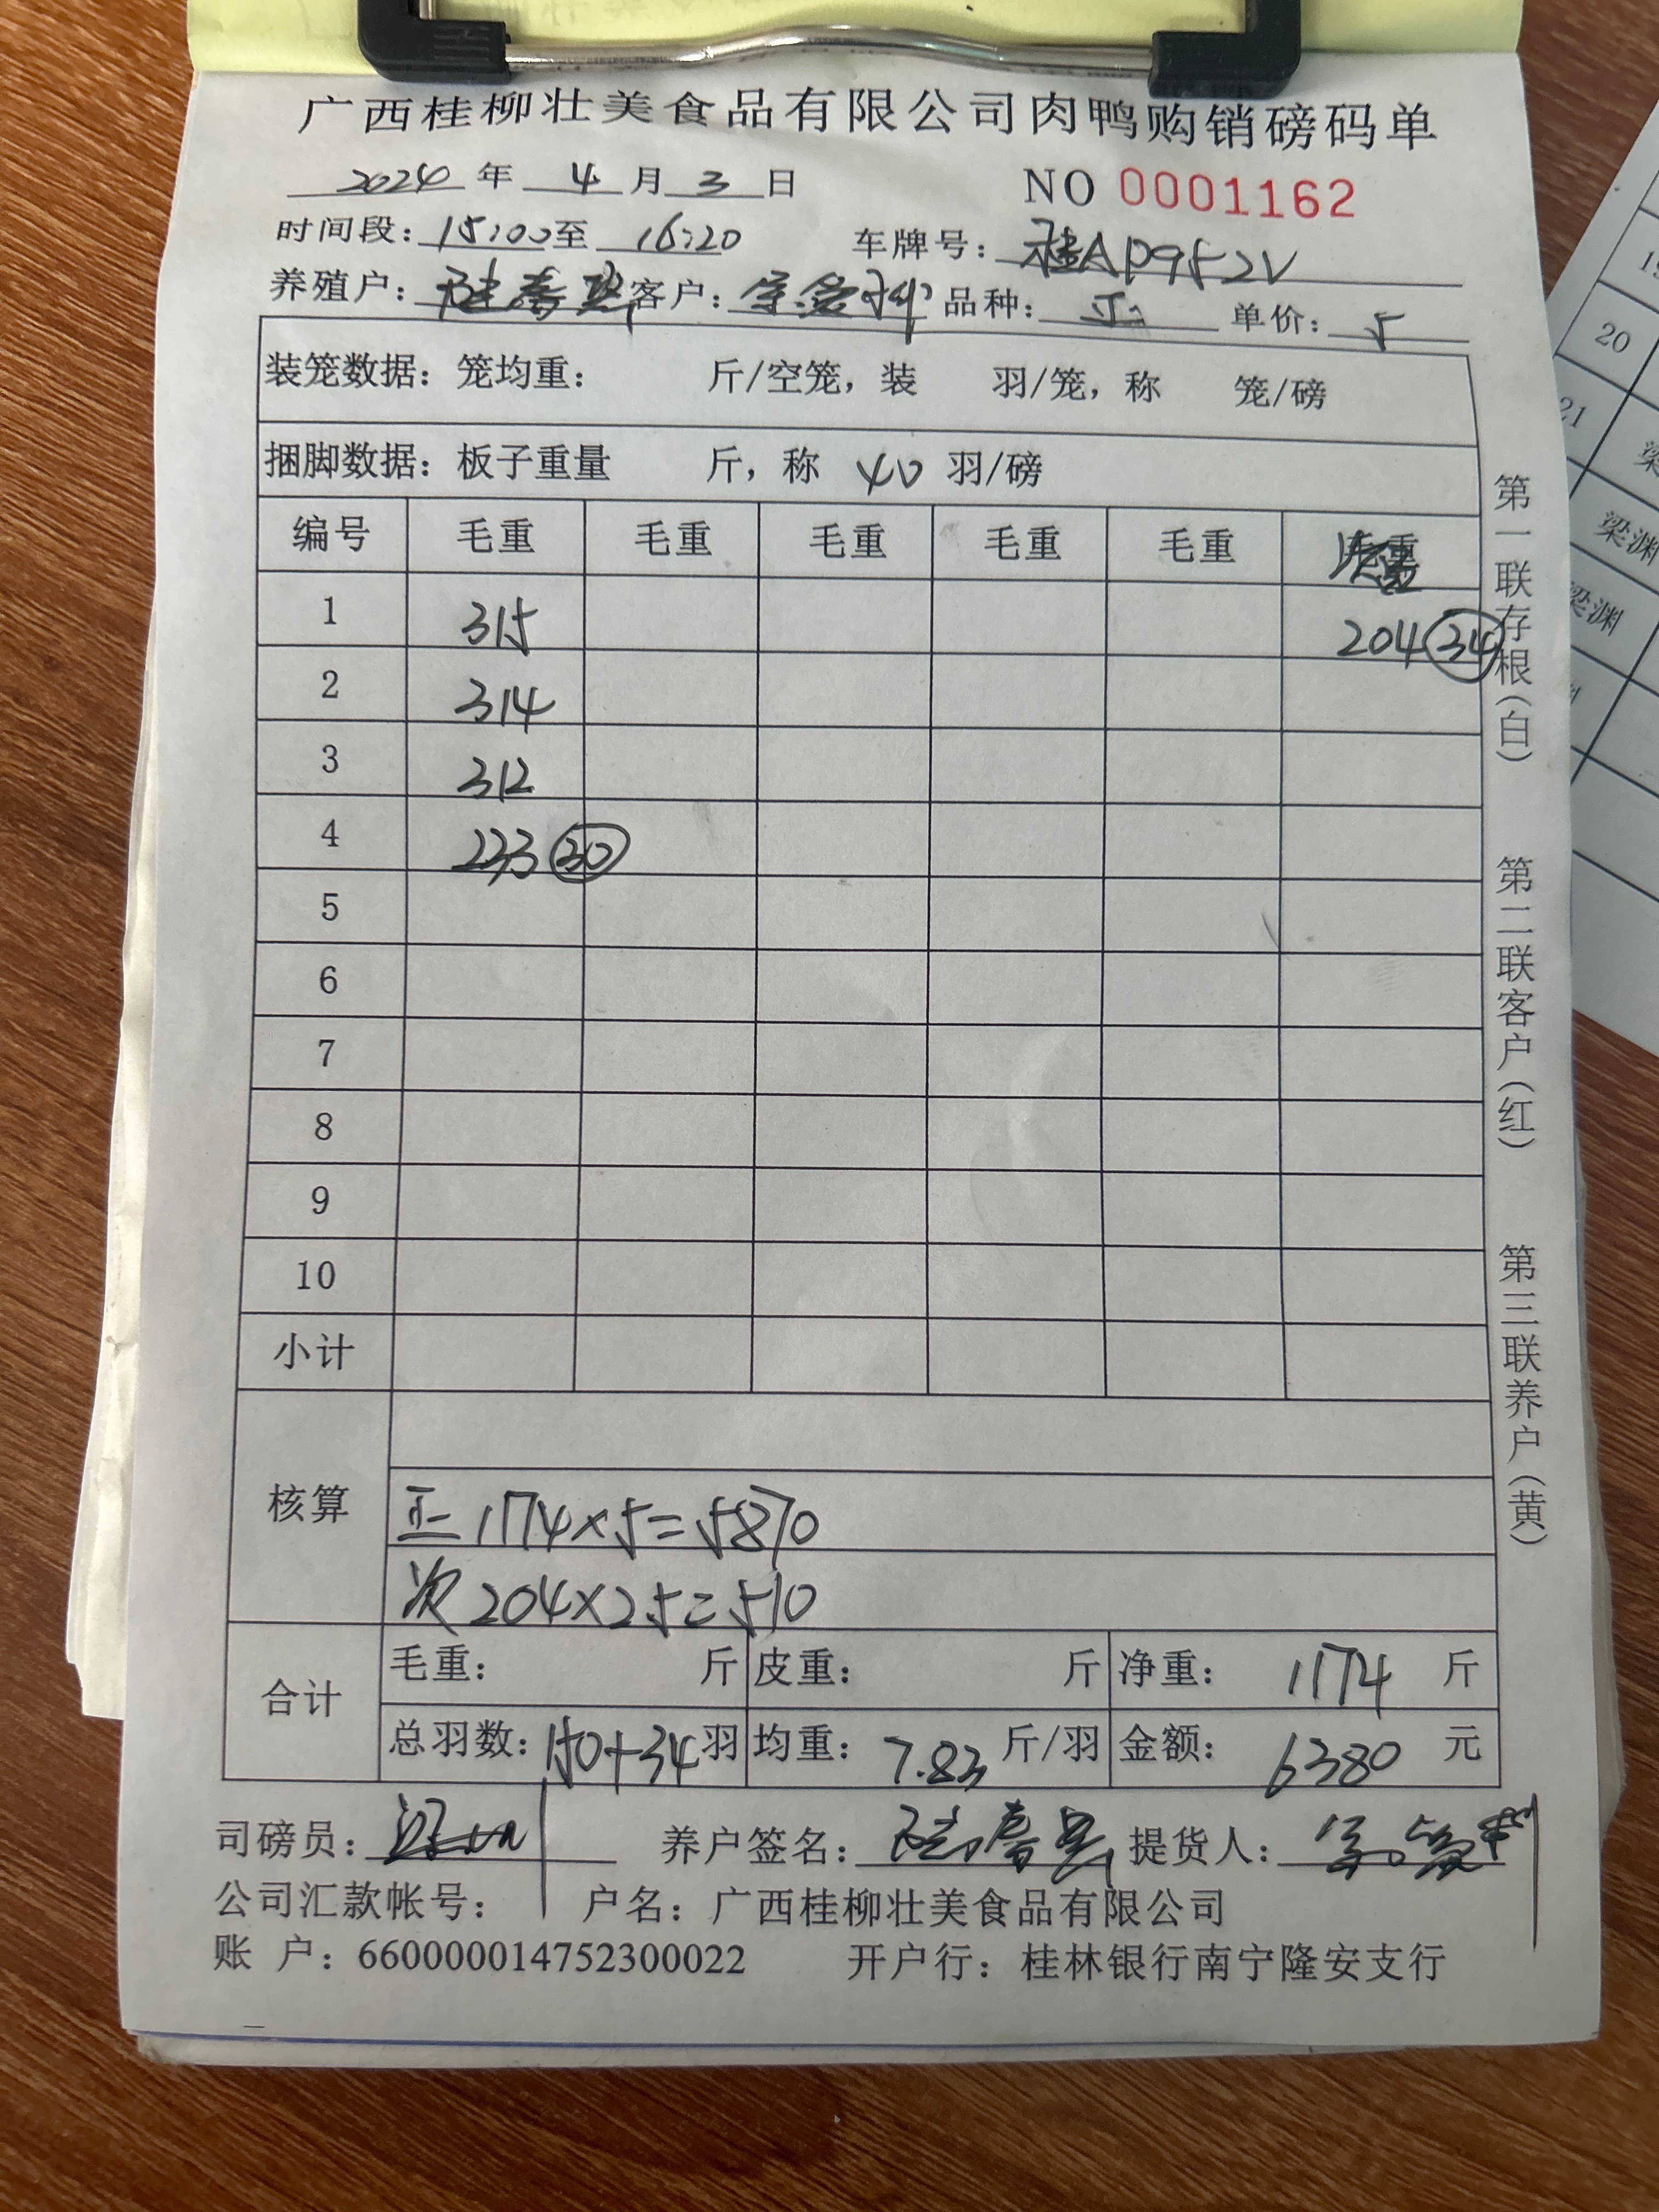 广西桂柳壮美食品有限公司肉鸭购销磅码单
2024 年 4 月 3 日 NO 0001162
时间段: 15:00 至 16:20 车牌号: 桂AD9F52V
养殖户: 客户: 品种: 单价: 5
装笼数据: 笼均重: 斤/空笼, 装 羽/笼, 称 笼/磅
捆脚数据: 板子重量 斤, 称 40 羽/磅
编号 毛重 毛重 毛重 毛重 毛重
1 315 204 34
2 314
3 312
4 233 30
5
6
7
8
9
10
小计
核算
正 1174×5=5870
次 204×2.5=510
合计 毛重: 斤 皮重: 斤 净重: 1174 斤
总羽数: 150+34 羽 均重: 7.83 斤/羽 金额: 6380 元
司磅员: 养户签名: 提货人:
公司汇款帐号: 户名: 广西桂柳壮美食品有限公司
账 户: 660000014752300022 开户行: 桂林银行南宁隆安支行
第一联存根(白)
第二联客户(红)
第三联养户(黄)
20
21
梁渊
梁渊